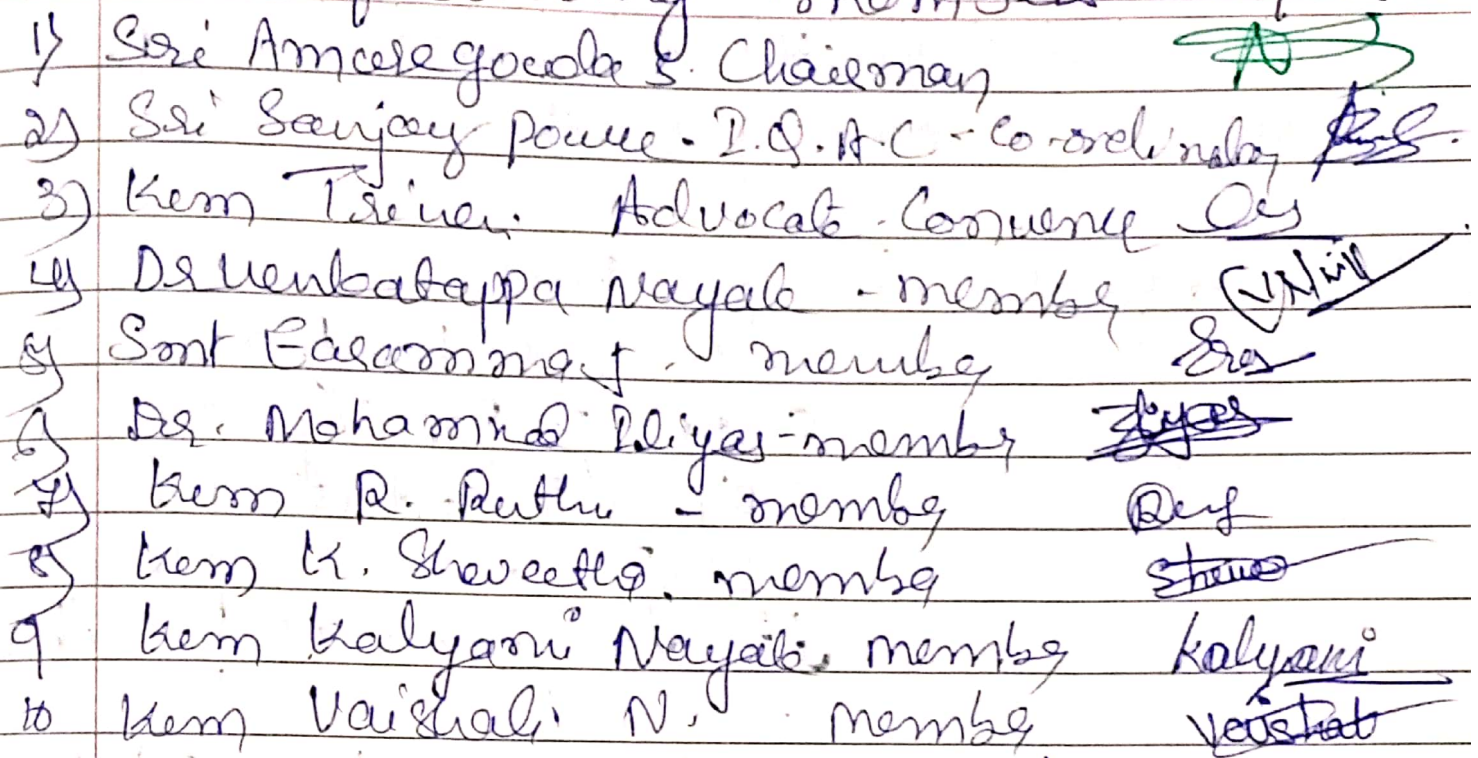 members
1) Sri Amaregouda S. Chairman
2) Sri Sanjay Pawar - I.Q.A.C - Co-ordinator
3) Kum Triveni Advocate - Convener
4) Dr Venkatappa Nayak - member
5) Smt Earamma J. member
6) Dr. Mohammed Iliyas - member Iliyas
7) Kum R. Ruthu - member
8) Kum K. Shweetha. member
9. Kum Kalyani Nayak. member kalyani
10 Kum Vaishali N. member Vaishali